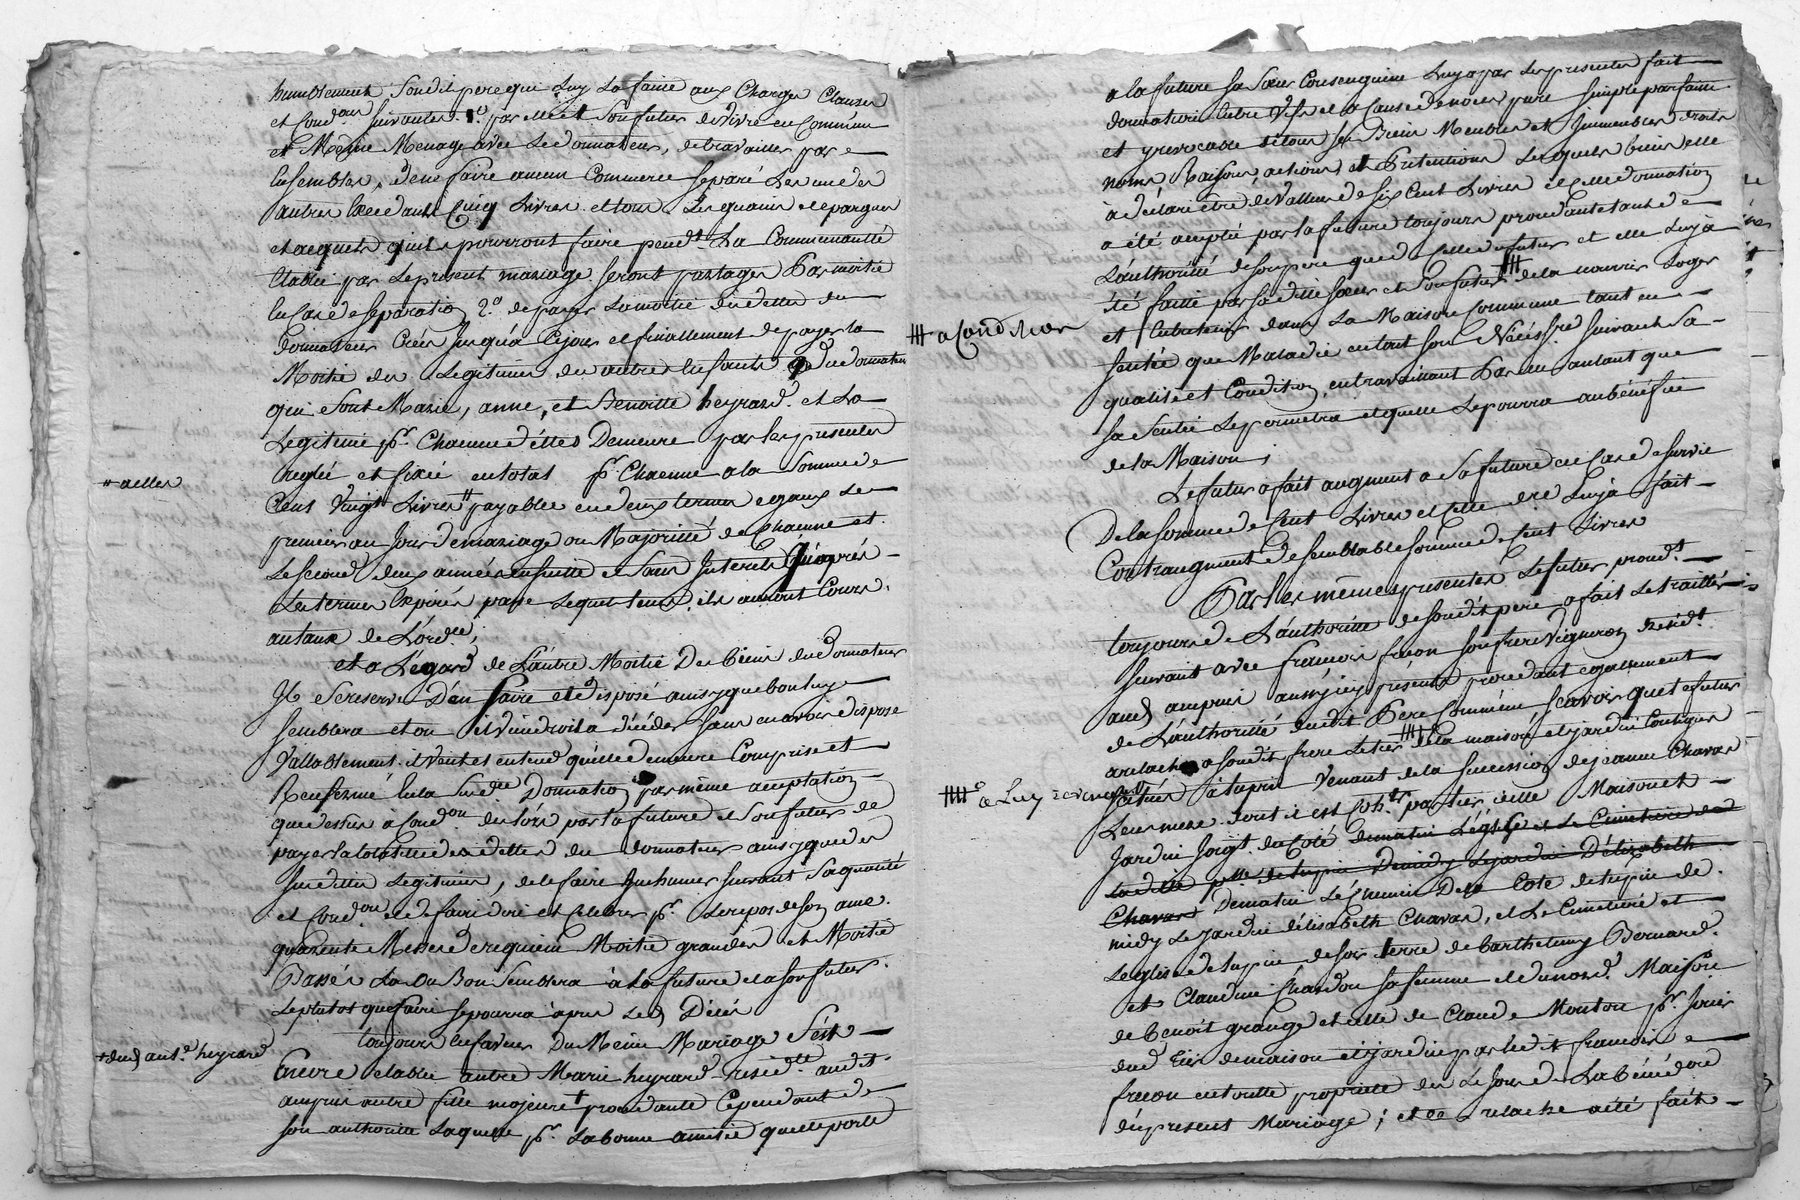 humblement Sondit pere qui Luy La faitte aux Charges Clauses
et Cond.on Suivantes. 1.o par elle et Son futur de Vivre en Commun
et Meme Menage avec Le donnateur, de travailler par
Ensembles, dene faire aucun Commerce Separé Les uns des
autres Excedant Cinq Livres et tous Les gains et epargnes
et acquets quils pourront faire pend.t La Communauté
Etablie par Le present mariage Seront partagés Par moitié
En Cas de Separation 2.o de payer La moitié des dettes du
donnateur Crées Jusqu'à Cejour et finallement de payer la
Moitié des Legitimes des autres Enfants du donnateur
qui Sont Marie, anne, et Benoitte heyraud. et La
Legitime p.r Chacune d'elles Demeure par les presentes
reglée et fixée en total p.r Chacune a la Somme de
Cent Vingt Livres " payable en deux termes egaux Le
" a elles
premier au Jour de mariage ou Majorité de Chacune et
Le Second deux années ensuitte et Sans Interets qu'après
Les termes Expirés passé Lequel temps ils auront Cours.
au taux de L'ord.ce
et a L'egard de L'autre Moitié Des biens du donnateur
Il Se reserve D'en faire et disposé ainsy que bon luy
Semblera et ou il Viendroit a décéder Sans en avoir disposé
Vallablement il Veut et entend qu'elle demeure Comprise et
Renfermé En la Susd.e Donnation par même acceptation
que dessus a Cond.on dès lors par la future et Son futur de
payer la totallité des dettes du donnateur ainsy que des
Susdittes Legitimes, de le faire Inhumer Suivant Sa qualité
et Cond.on et de faire dire et Celebrer p.r Le repos de Son ame.
quarente Messes de requiem Moitié grandes et Moitié
Basses La ou Bon Semblera à La future et a Son futur.
Le plutot que faire Se pourra après Led. Décès
toujours En faveur Du Meme Mariage S'est
Encore etablie autre Marie heyraud resid.te audit
ampuis autre fille majeure + procedante Cependant de
+ dud. ant.e heyraud
Son authorité Laquelle p.r La bonne amitié quelle porte
a la future Sa Sœur Consenguine Luy a par Les presentes fait
donnation Entre Vifs et a Cause de noces pure Simple parfaitte
et yrevocable de tous Ses Biens Meubles et Immeubles droits
noms Raisons, actions et Pretentions Lesquels biens elle
à déclaré être de Valleur de Six Cent Livres et Cette donnation
a été acceptée par la future toujours procedante tant de
L'authorité de Son pere que de Celle du futur et elle Luy à
été faitte par Sa ditte Sœur et Son futur de la nourrir Loger
a Condition
et Entretenir dans La Maison Commune tant en
Santée que Maladie en tout Son Nécéss.re Suivant Sa
qualité et Condition, en travaillant Par en autant que
Sa Santée Le permettra et quelle Le pourra au bénéfice
de la Maison,
Le futur a fait augment a Sa future en Cas de Survie
De la Somme de Cent Livres et Cette d.re Luy à fait
Contraugment de Semblable Somme de Cent Livres
Par les mêmes presentes Le futur proced.t
toujours de L'authorité de Soudit pere a fait Le traitté
Suivant avec francois fucon Son frere Vigneron resid.t
aud. ampuis aussy icy présent procedant egallement
de L'authorité dudit Pere Commun Scavoir que Le futur
a relaché a Soudit frere Le tier de la maison et jardin Contigus
a Luy revenant
Situés à tupin Venant de la Succession de jeanne Chavas
Leur mere dont il est Coh.er par tier icelle Maison et
Jardin Joig.t du Coté de matin L'église et Le Cimetiere de
Chavas De matin Le Chemin De la Cote de tupin de
midy Le Jardin d'élizabeth Chavas, et Le Cimetiere et
L'eglise de tupin de Soir terre de Barthelemy Bernard
et Claudine Chardon Sa femme et de nord Maison
de Benoit grange et celle de Claude Mouton p.r Jouir
dud. tier de maison et jardin par ledit francois
fucon en toutte proprieté dès Le Jour de La bénédon
du present Mariage; et ce relache a été fait